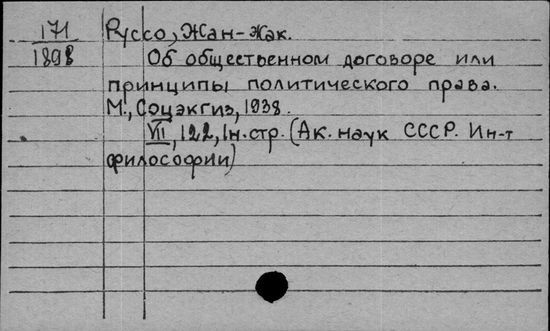 171 Руссо, Жан-Жак.
1898 Об общественном договоре или
принципы политического права.
М., Соцэкгиз, 1938.
VII, 122, 1н.стр. (Ак. наук СССР. Ин-т
философии)